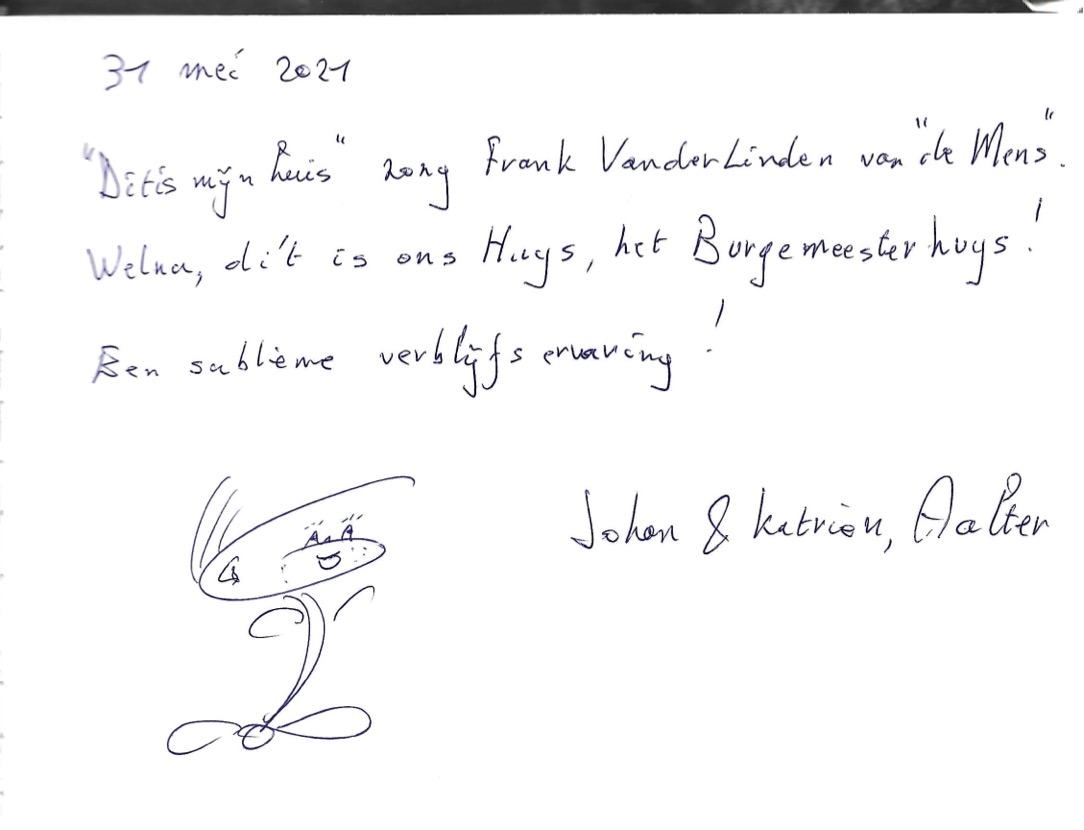 31 mei 2021
"Dit is mijn huis" zong Frank VanderLinden van "de Mens".
Welnu, dit is ons Huys, het Burgemeesterhuys!
Een sublieme verblijfservaring!
Johan & Katrien, Aalter